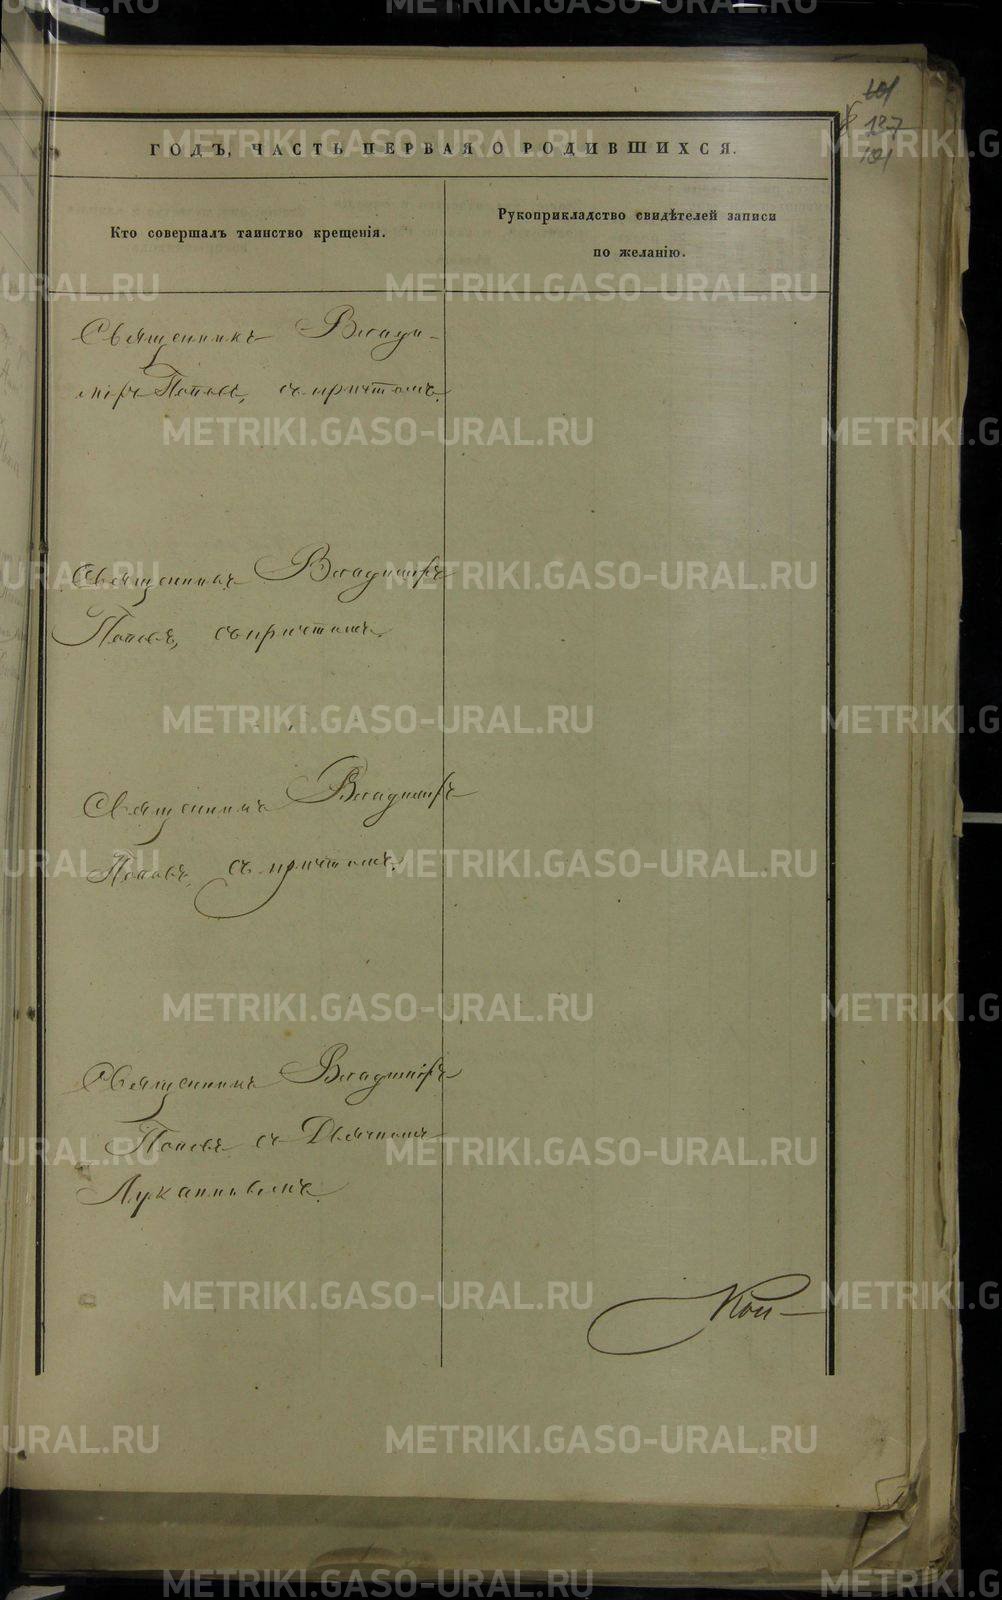 METRIKI.GASO-URAL.RU
137
101
ГОДЪ, ЧАСТЬ ПЕРВАЯ О РОДИВШИХСЯ.
Кто совершалъ таинство крещенія.
Рукоприкладство свидѣтелей записи
по желанію.
Священникъ Влади-
міръ Поповъ, съ причтомъ.
Священникъ Владиміръ
Поповъ, съ причтомъ.
Священникъ Владиміръ
Поповъ, съ причтомъ.
Священникъ Владиміръ
Поповъ съ Дьячкомъ
Лукановымъ.